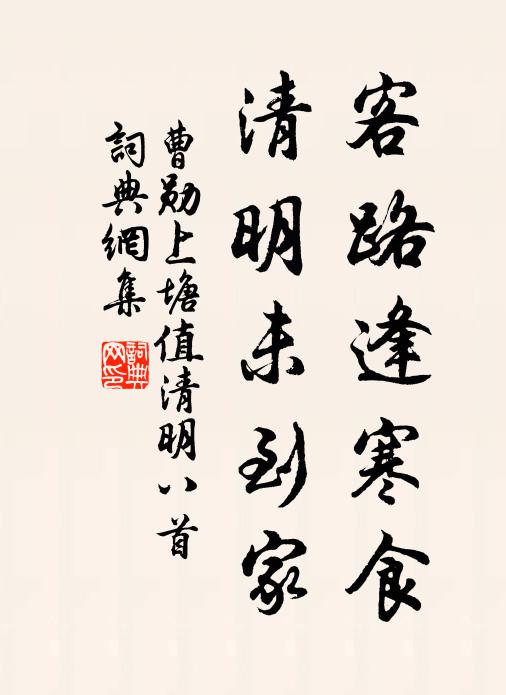 客路逢寒食
清明未到家
曹勛上塘值清明八首
詞典網集
詞典
网印